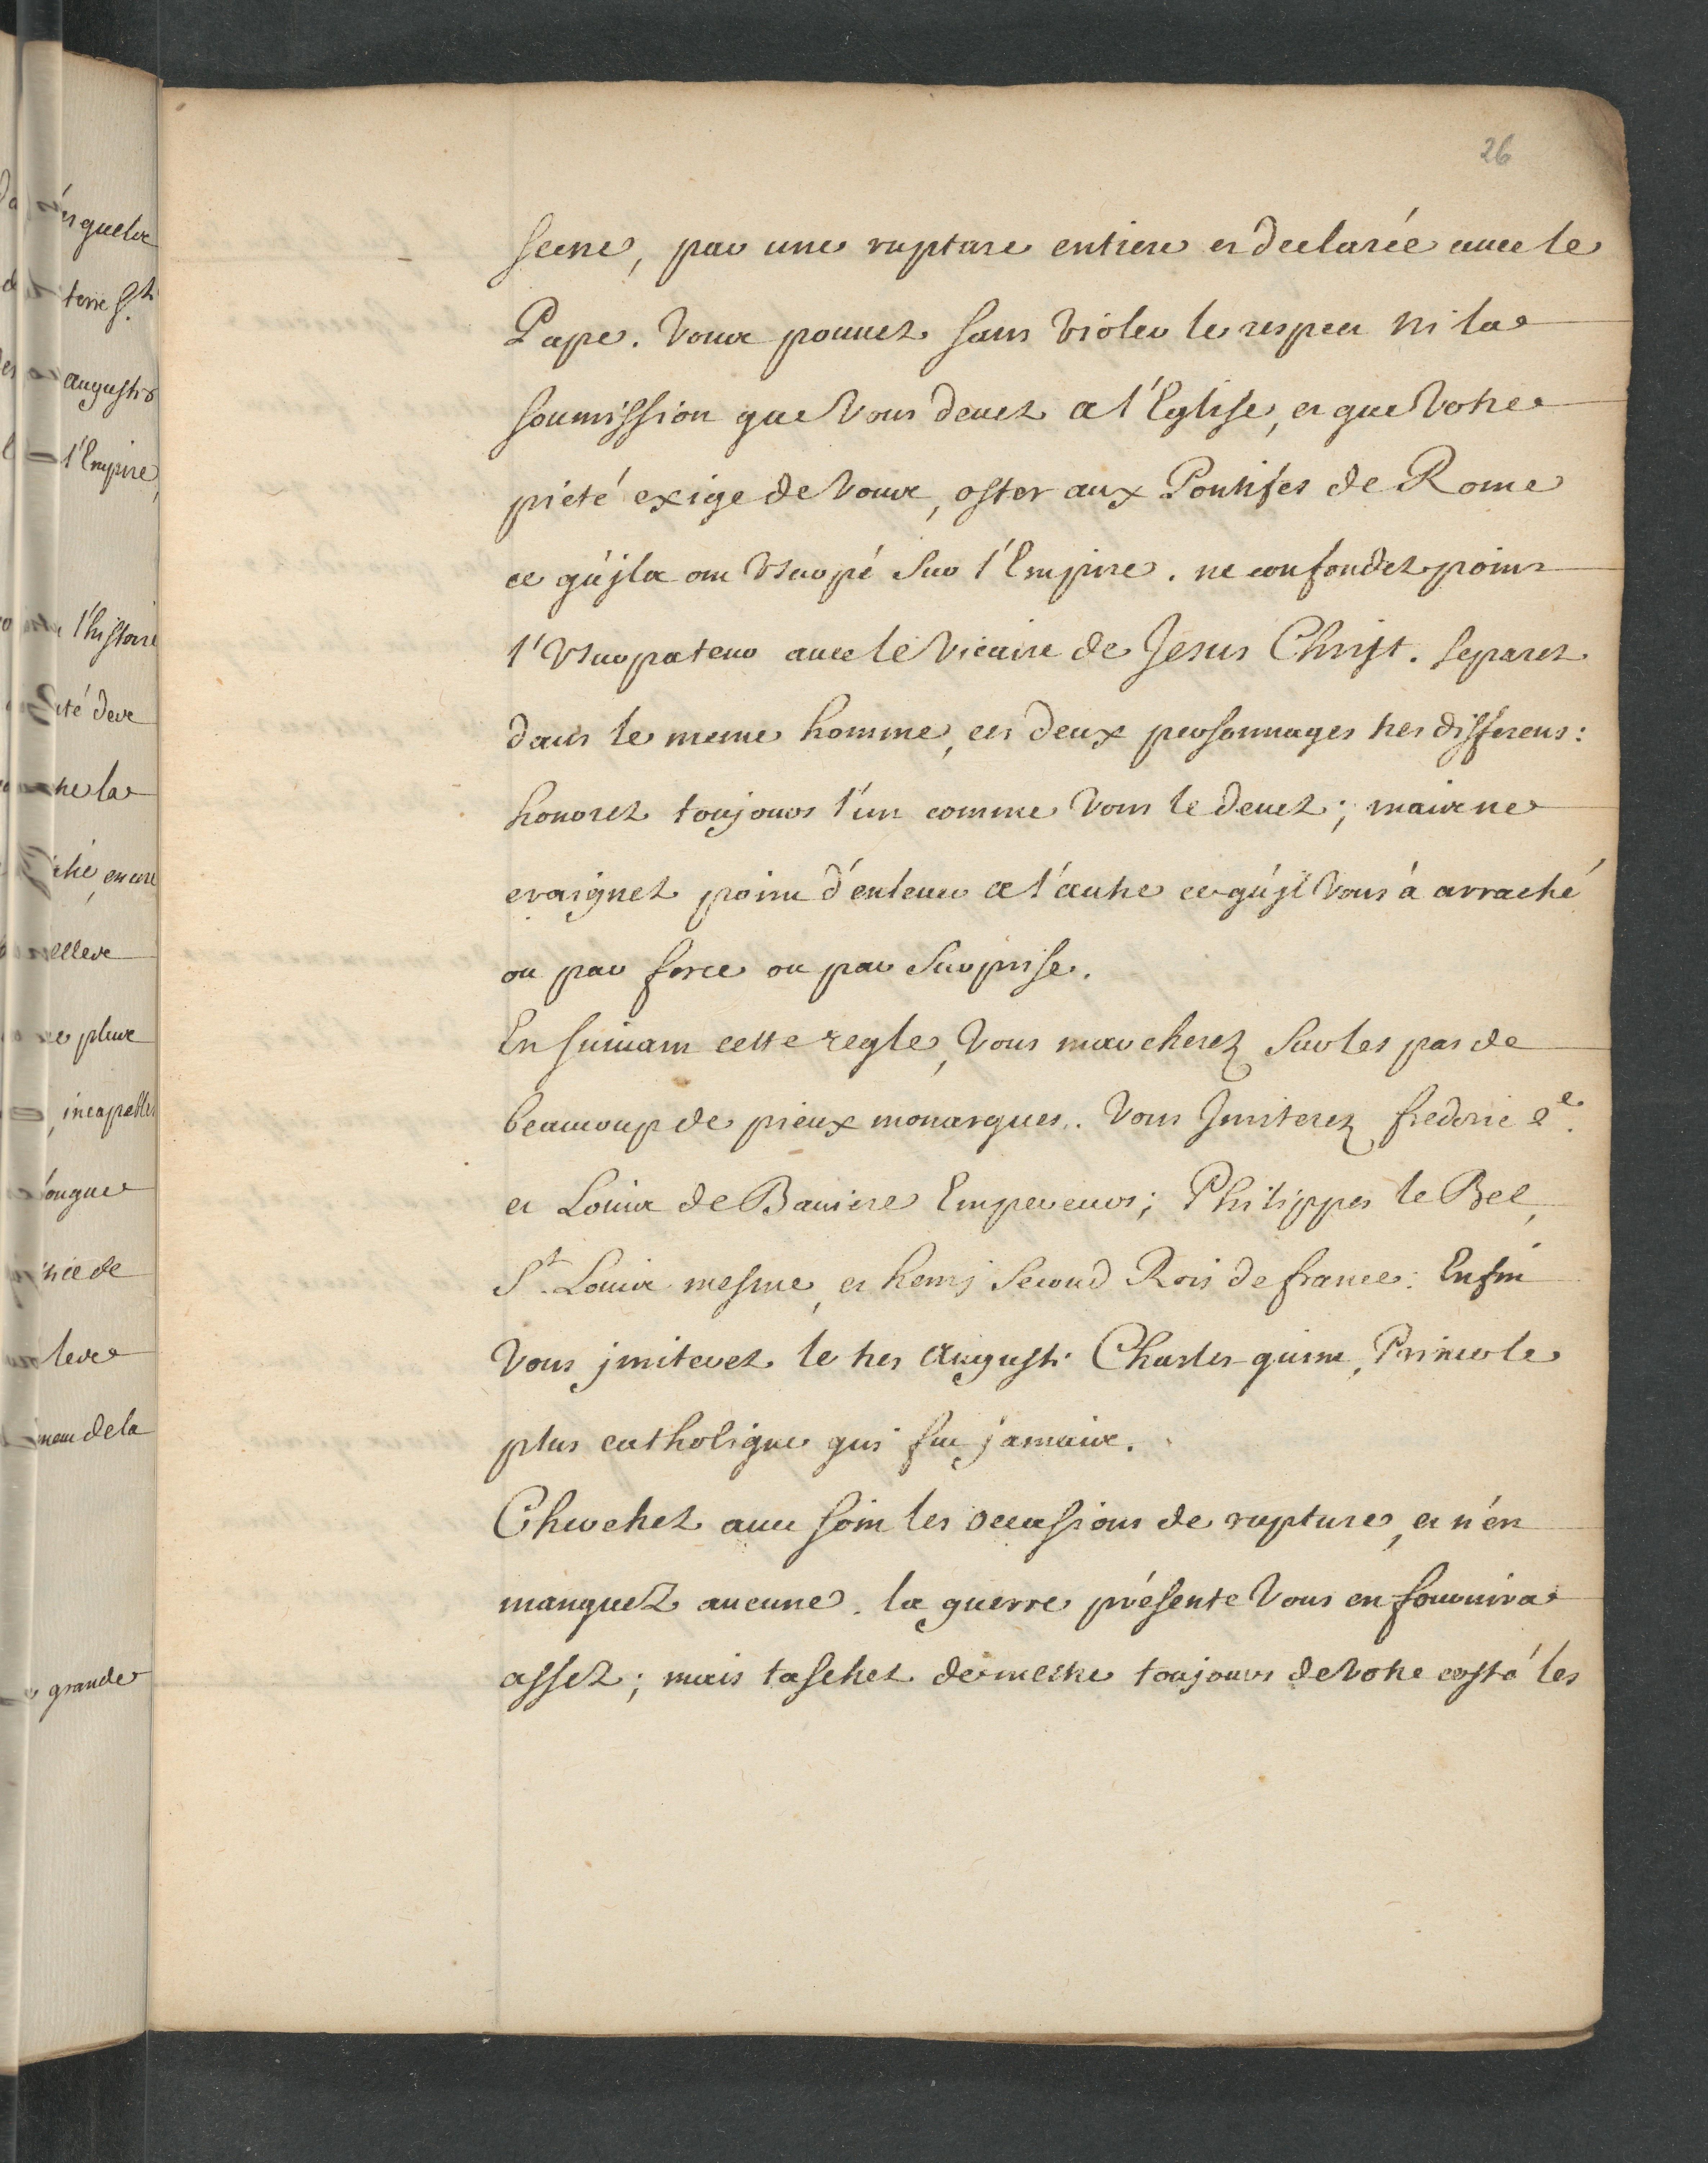 26
scene, par une rupture entiere et declarée avec le
Pape. Vous pouuez sans violer le respect ni la
soumission que vous deuez a l'Eglise, et que votre
piété exige de vous, oster aux Pontifes de Rome
ce qu'jls ont vsurpé sur l'Empire. ne confondez point
l'vsurpateur auec le vicaire de Jesus Christ. separez
dans le meme homme, ces deux personnages tres differens:
honorez toujours l'un comme vous le deuez; mais ne
craignez point d'enleuer a l'autre ce qu'jl vous à arraché
ou par force ou par surprise.
En suiuant cette regle, vous marcherez sur les pas de
beaucoup de pieux monarques. vous Jmiterez frederic 2e.
et Louis de Bauiere Empereurs; Philippes le Bel,
St. Louis mesme, et henrj second Rois de france: Enfin
vous jmiterez le tres auguste Charles-quint, Prince le
plus catholique qui fut jamais.
Cherchez auec soin les occasions de rupture, et n'én
manquez aucune. la guerre présente vous en fournira
assez; mais taschez de mettre toujours de votre costé les
terre St
augustes
l'Empire,
l'histoire
incapables
grande